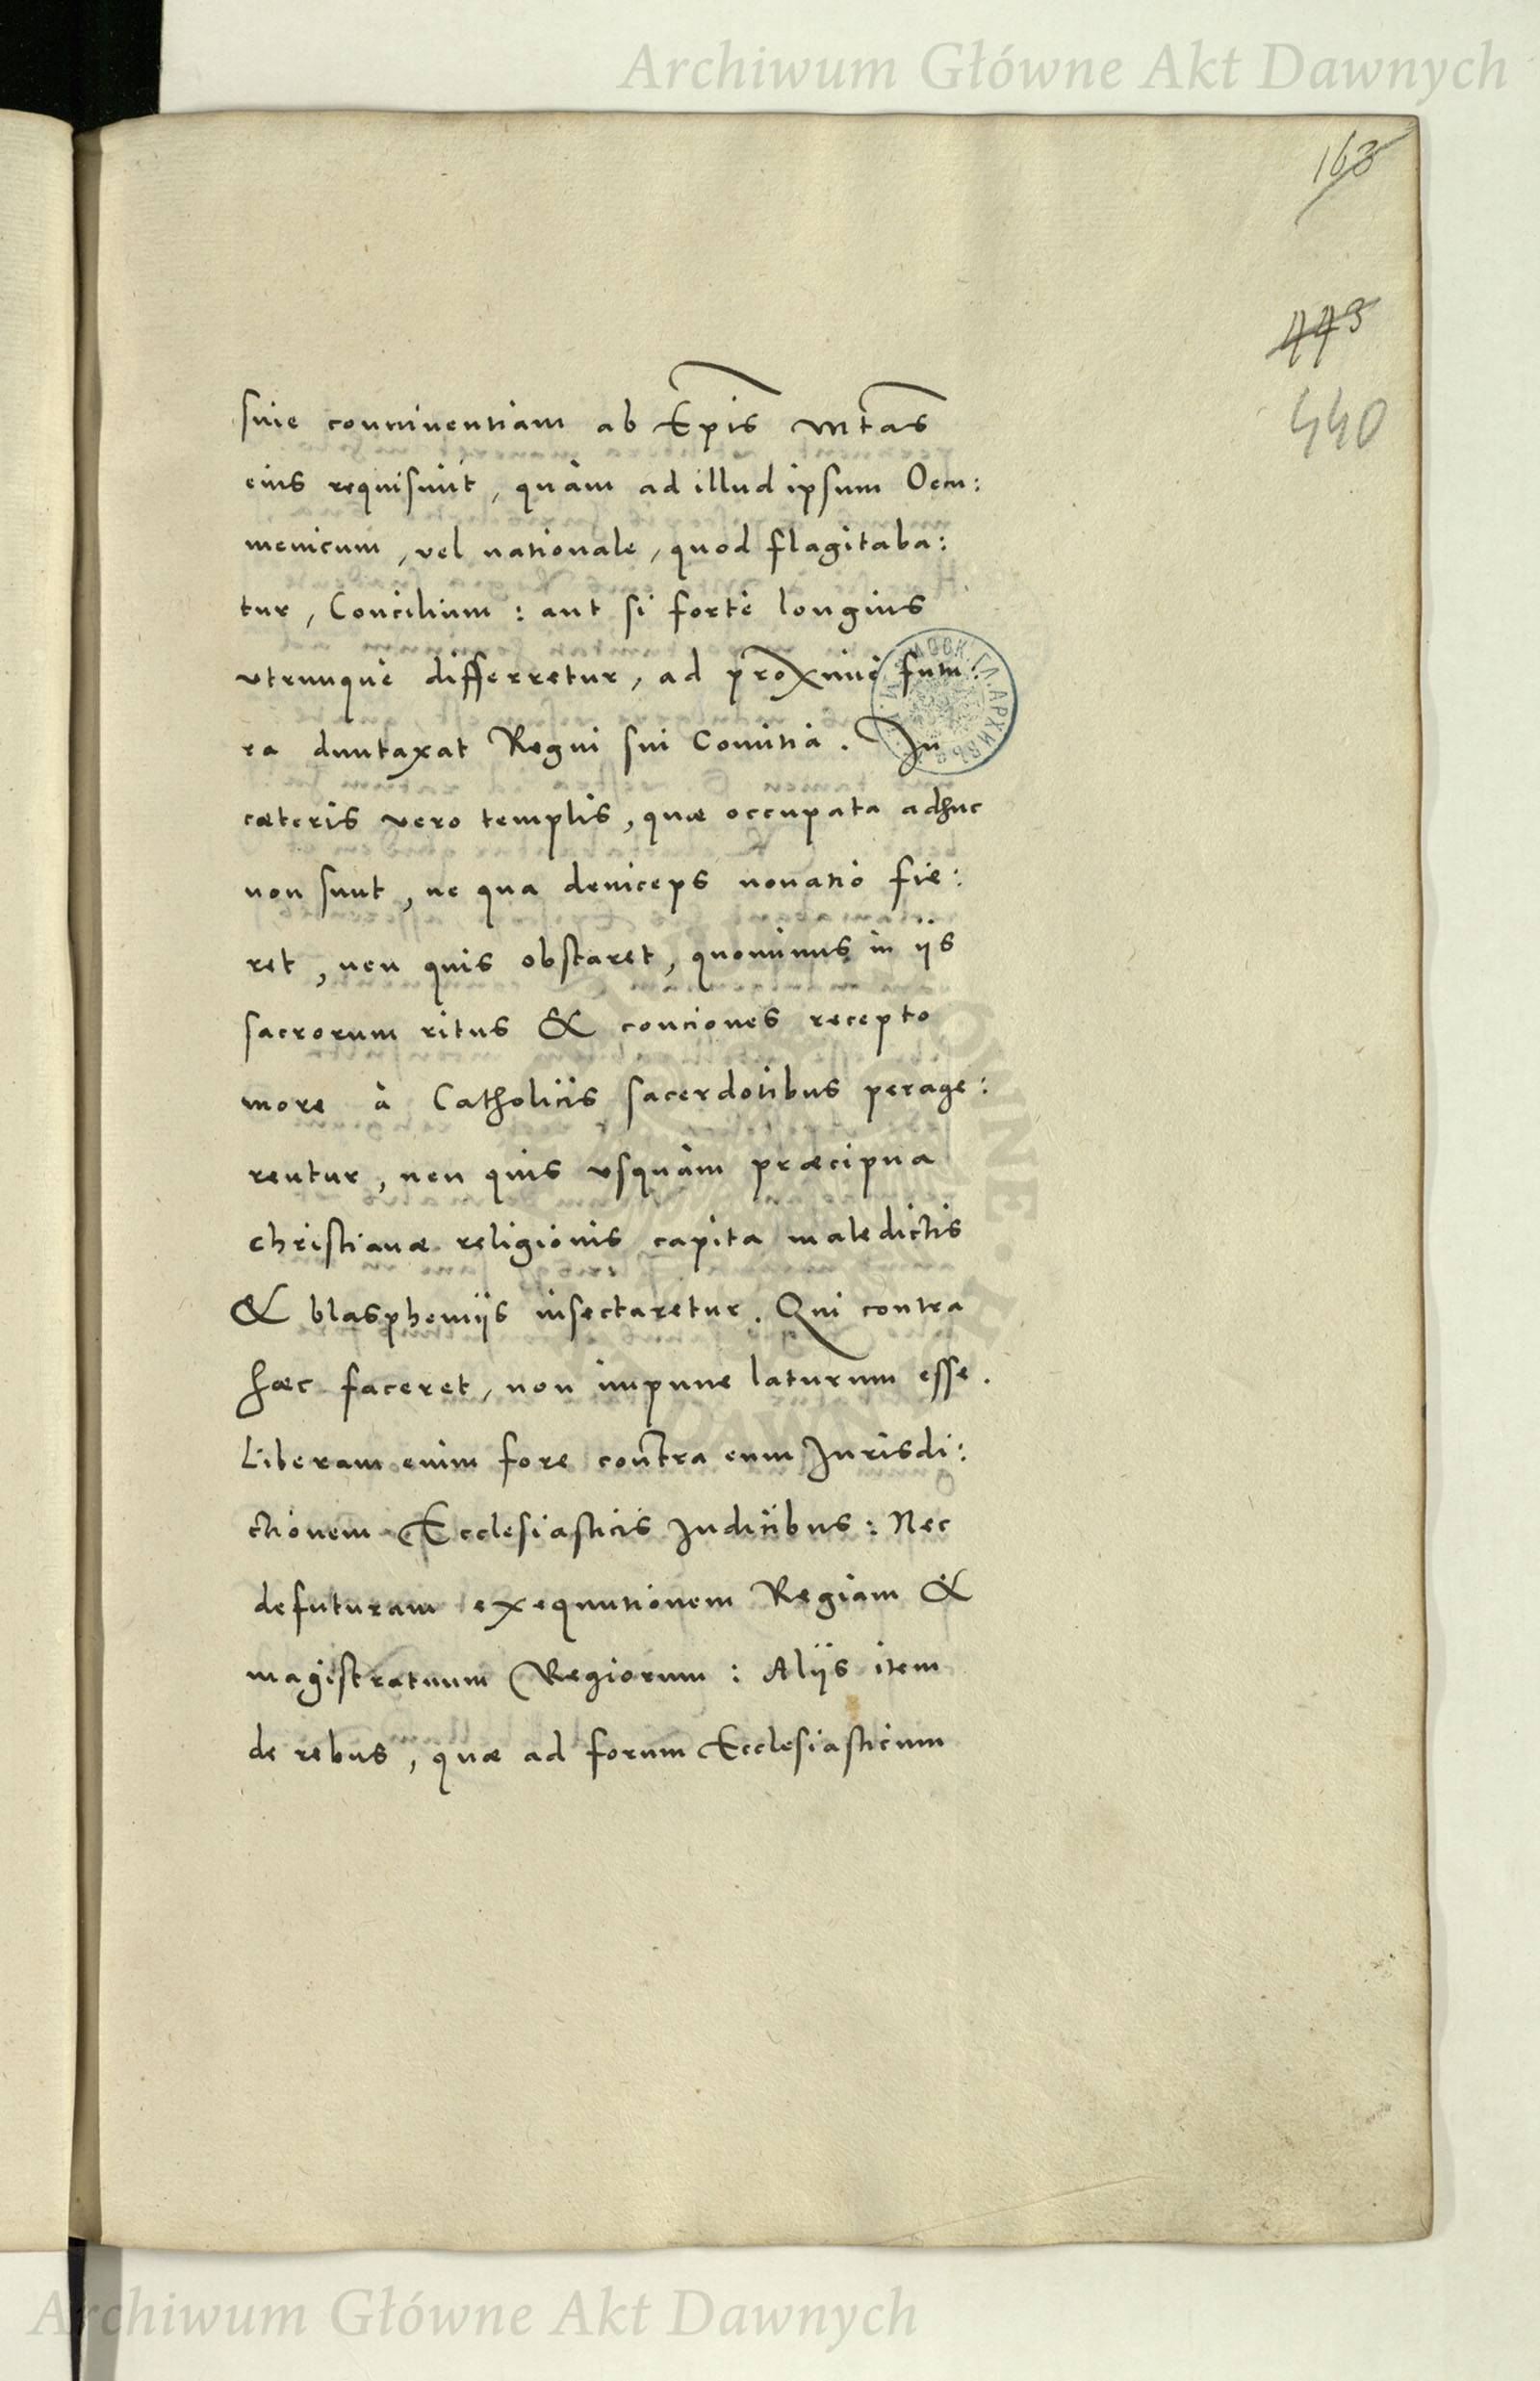 Archiwum Główne Akt Dawnych
163
443
440
suie conniuentiam ab Epis Mtas
eius requisiuit, quàm ad illud ipsum Oecu:
menicum, vel nationale, quod flagitaba:
tur, Concilium: aut si fortè longius
vtrunque differretur, ad proximè futu:
ra duntaxat Regni sui Comitia. In
cæteris vero templis, quæ occupata adhuc
non sunt, ne qua deinceps nouatio fie:
ret, neu quis obstaret, quominus in ijs
sacrorum ritus & conciones recepto
more à Catholicis sacerdotibus perage:
rentur, neu quis vsquàm præcipua
christianæ religionis capita maledictis
& blasphemijs insectaretur. Qui contra
hæc faceret, non impune laturum esse.
Liberam enim fore contra eum Jurisdi:
ctionem Ecclesiasticis Judicibus: Nec
defuturam exequutionem Regiam &
magistratuum Regiorum: Alijs item
de rebus, quæ ad forum Ecclesiasticum
Archiwum Główne Akt Dawnych